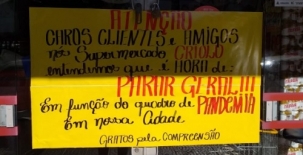 ATENÇÃO
CAROS CLIENTES e AMIGOS
nos Supermercado CRIOLO
entendemos que é HORA de:
PARAR GERAL!!!
Em função do quadro de PANDEMIA
Em nossa Cidade
GRATOS pela COMPREENSÃO